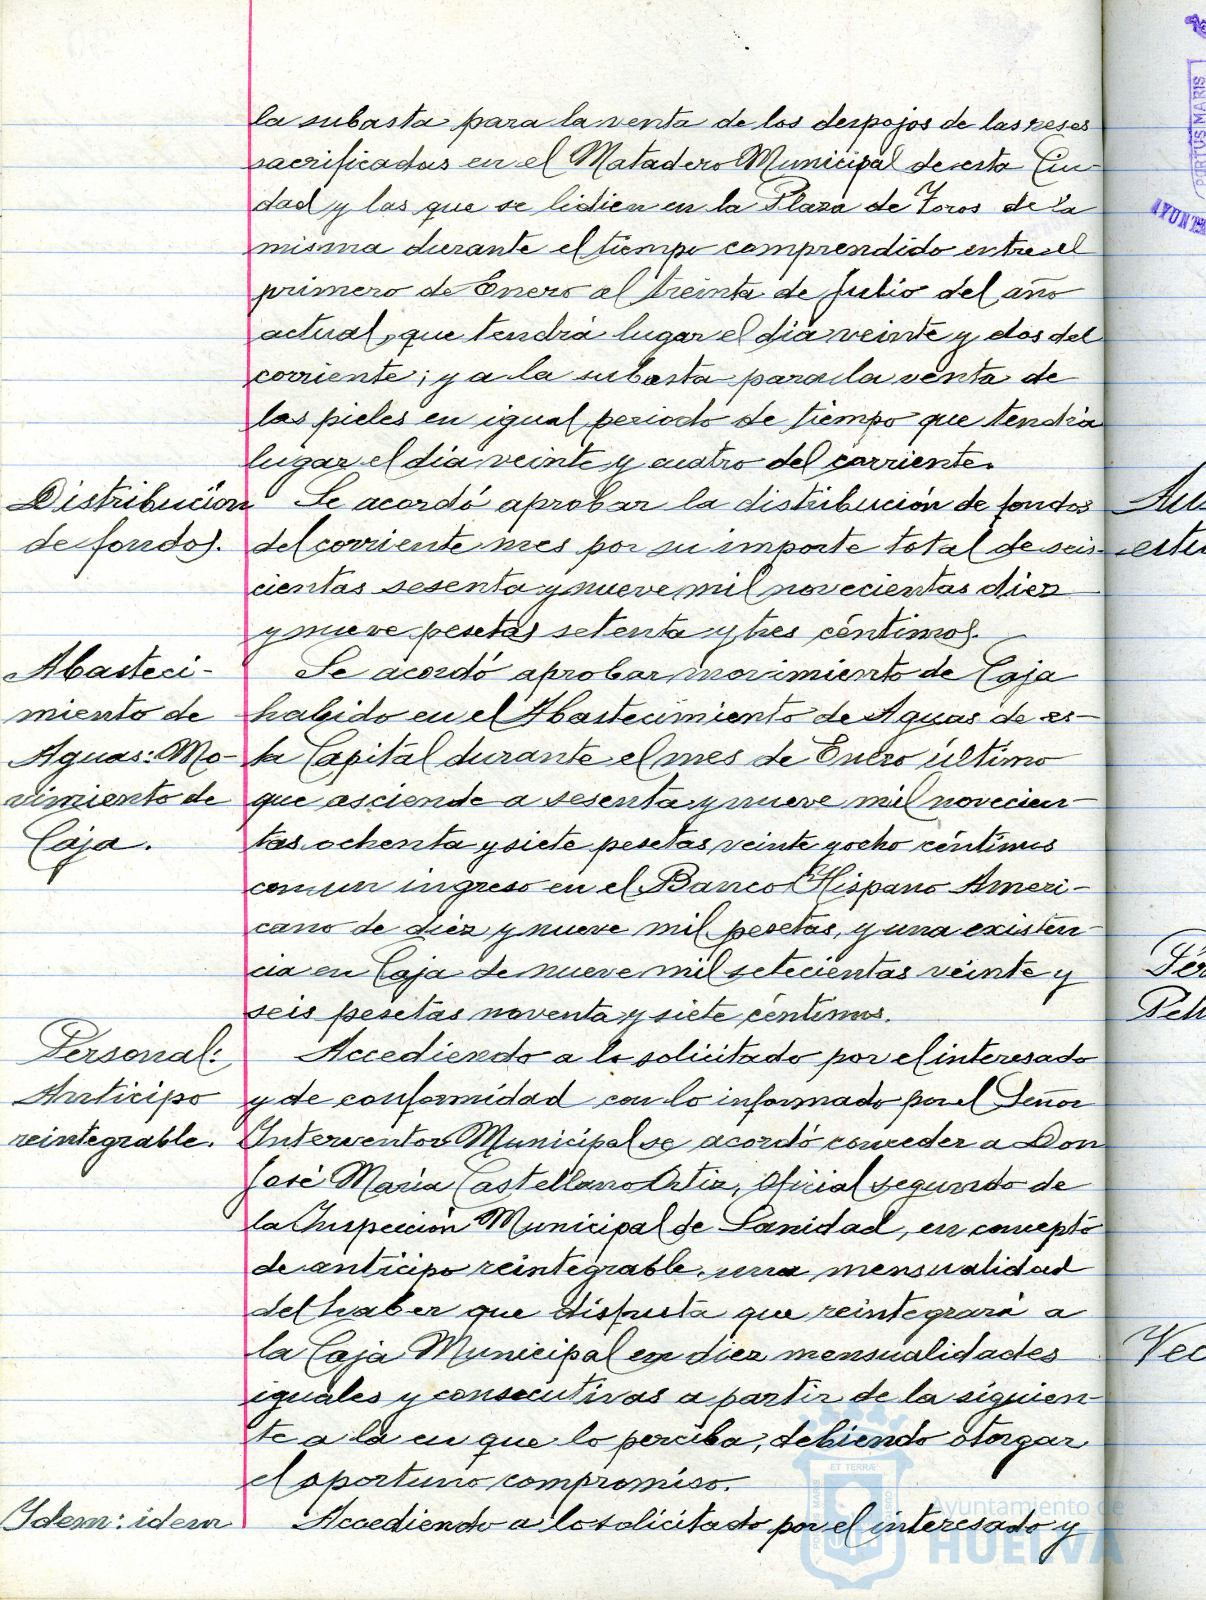 la subasta para la venta de los despojos de las reses
sacrificadas en el Matadero Municipal de esta Ciu-
dad y las que se lidien en la Plaza de Toros de la
misma durante el tiempo comprendido entre el
primero de Enero al treinta de Julio del año
actual, que tendrá lugar el día veinte y dos del
corriente; y a la subasta para la venta de
las pieles en igual periodo de tiempo que tendrá
lugar el día veinte y cuatro del corriente.
Distribución
de fondos.
Se acordó aprobar la distribución de fondos
del corriente mes por su importe total de seis-
cientas sesenta y nueve mil novecientas diez
y nueve pesetas setenta y tres céntimos.
Abasteci-
miento de
Aguas: Mo-
vimiento de
Caja.
Se acordó aprobar movimiento de Caja
habido en el Abastecimiento de Aguas de es-
ta Capital durante el mes de Enero último
que asciende a sesenta y nueve mil novecien-
tas ochenta y siete pesetas veinte y ocho céntimos
con un ingreso en el Banco Hispano Ameri-
cano de diez y nueve mil pesetas, y una existen-
cia en Caja de nueve mil setecientas veinte y
seis pesetas noventa y siete céntimos.
Personal:
Anticipo
reintegrable.
Accediendo a lo solicitado por el interesado
y de conformidad con lo informado por el Señor
Interventor Municipal se acordó conceder a Don
José María Castellano Ortiz, Oficial segundo de
la Inspección Municipal de Sanidad, en concepto
de anticipo reintegrable, una mensualidad
del haber que disfruta que reintegrará a
la Caja Municipal en diez mensualidades
iguales y consecutivas a partir de la siguien-
te a la en que lo perciba, debiendo otorgar
el oportuno compromiso.
Idem: idem
Accediendo a lo solicitado por el interesado y
PORTUS MARIS
ET TERRÆ
Ayuntamiento de
HUELVA